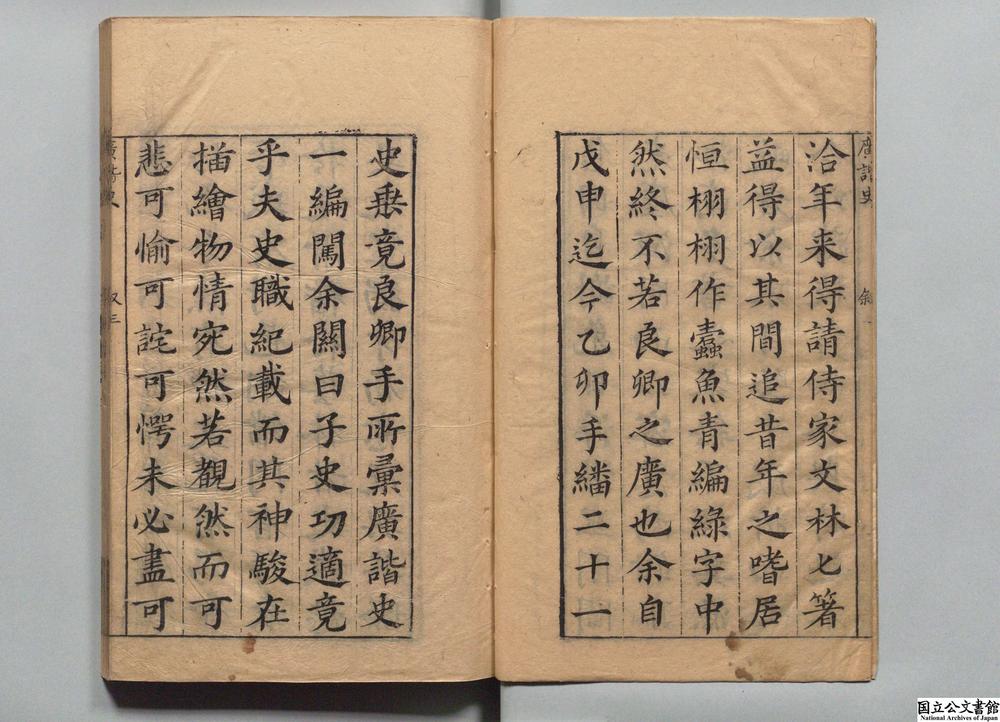 廣諧史 敘
洽年来得請侍家文林匕箸
益得以其間追昔年之嗜居
恒栩栩作蠹魚青編綠字中
然終不若良卿之廣也余自
戊申迄今乙卯手繙二十一
史垂竟良卿手所彙廣諧史
一編闖余關曰子史功適竟
乎夫史職紀載而其神駿在
描繪物情宛然若覩然而可
悲可愉可詫可愕未必盡可
廣諧史 叙三
国立公文書館
National Archives of Japan